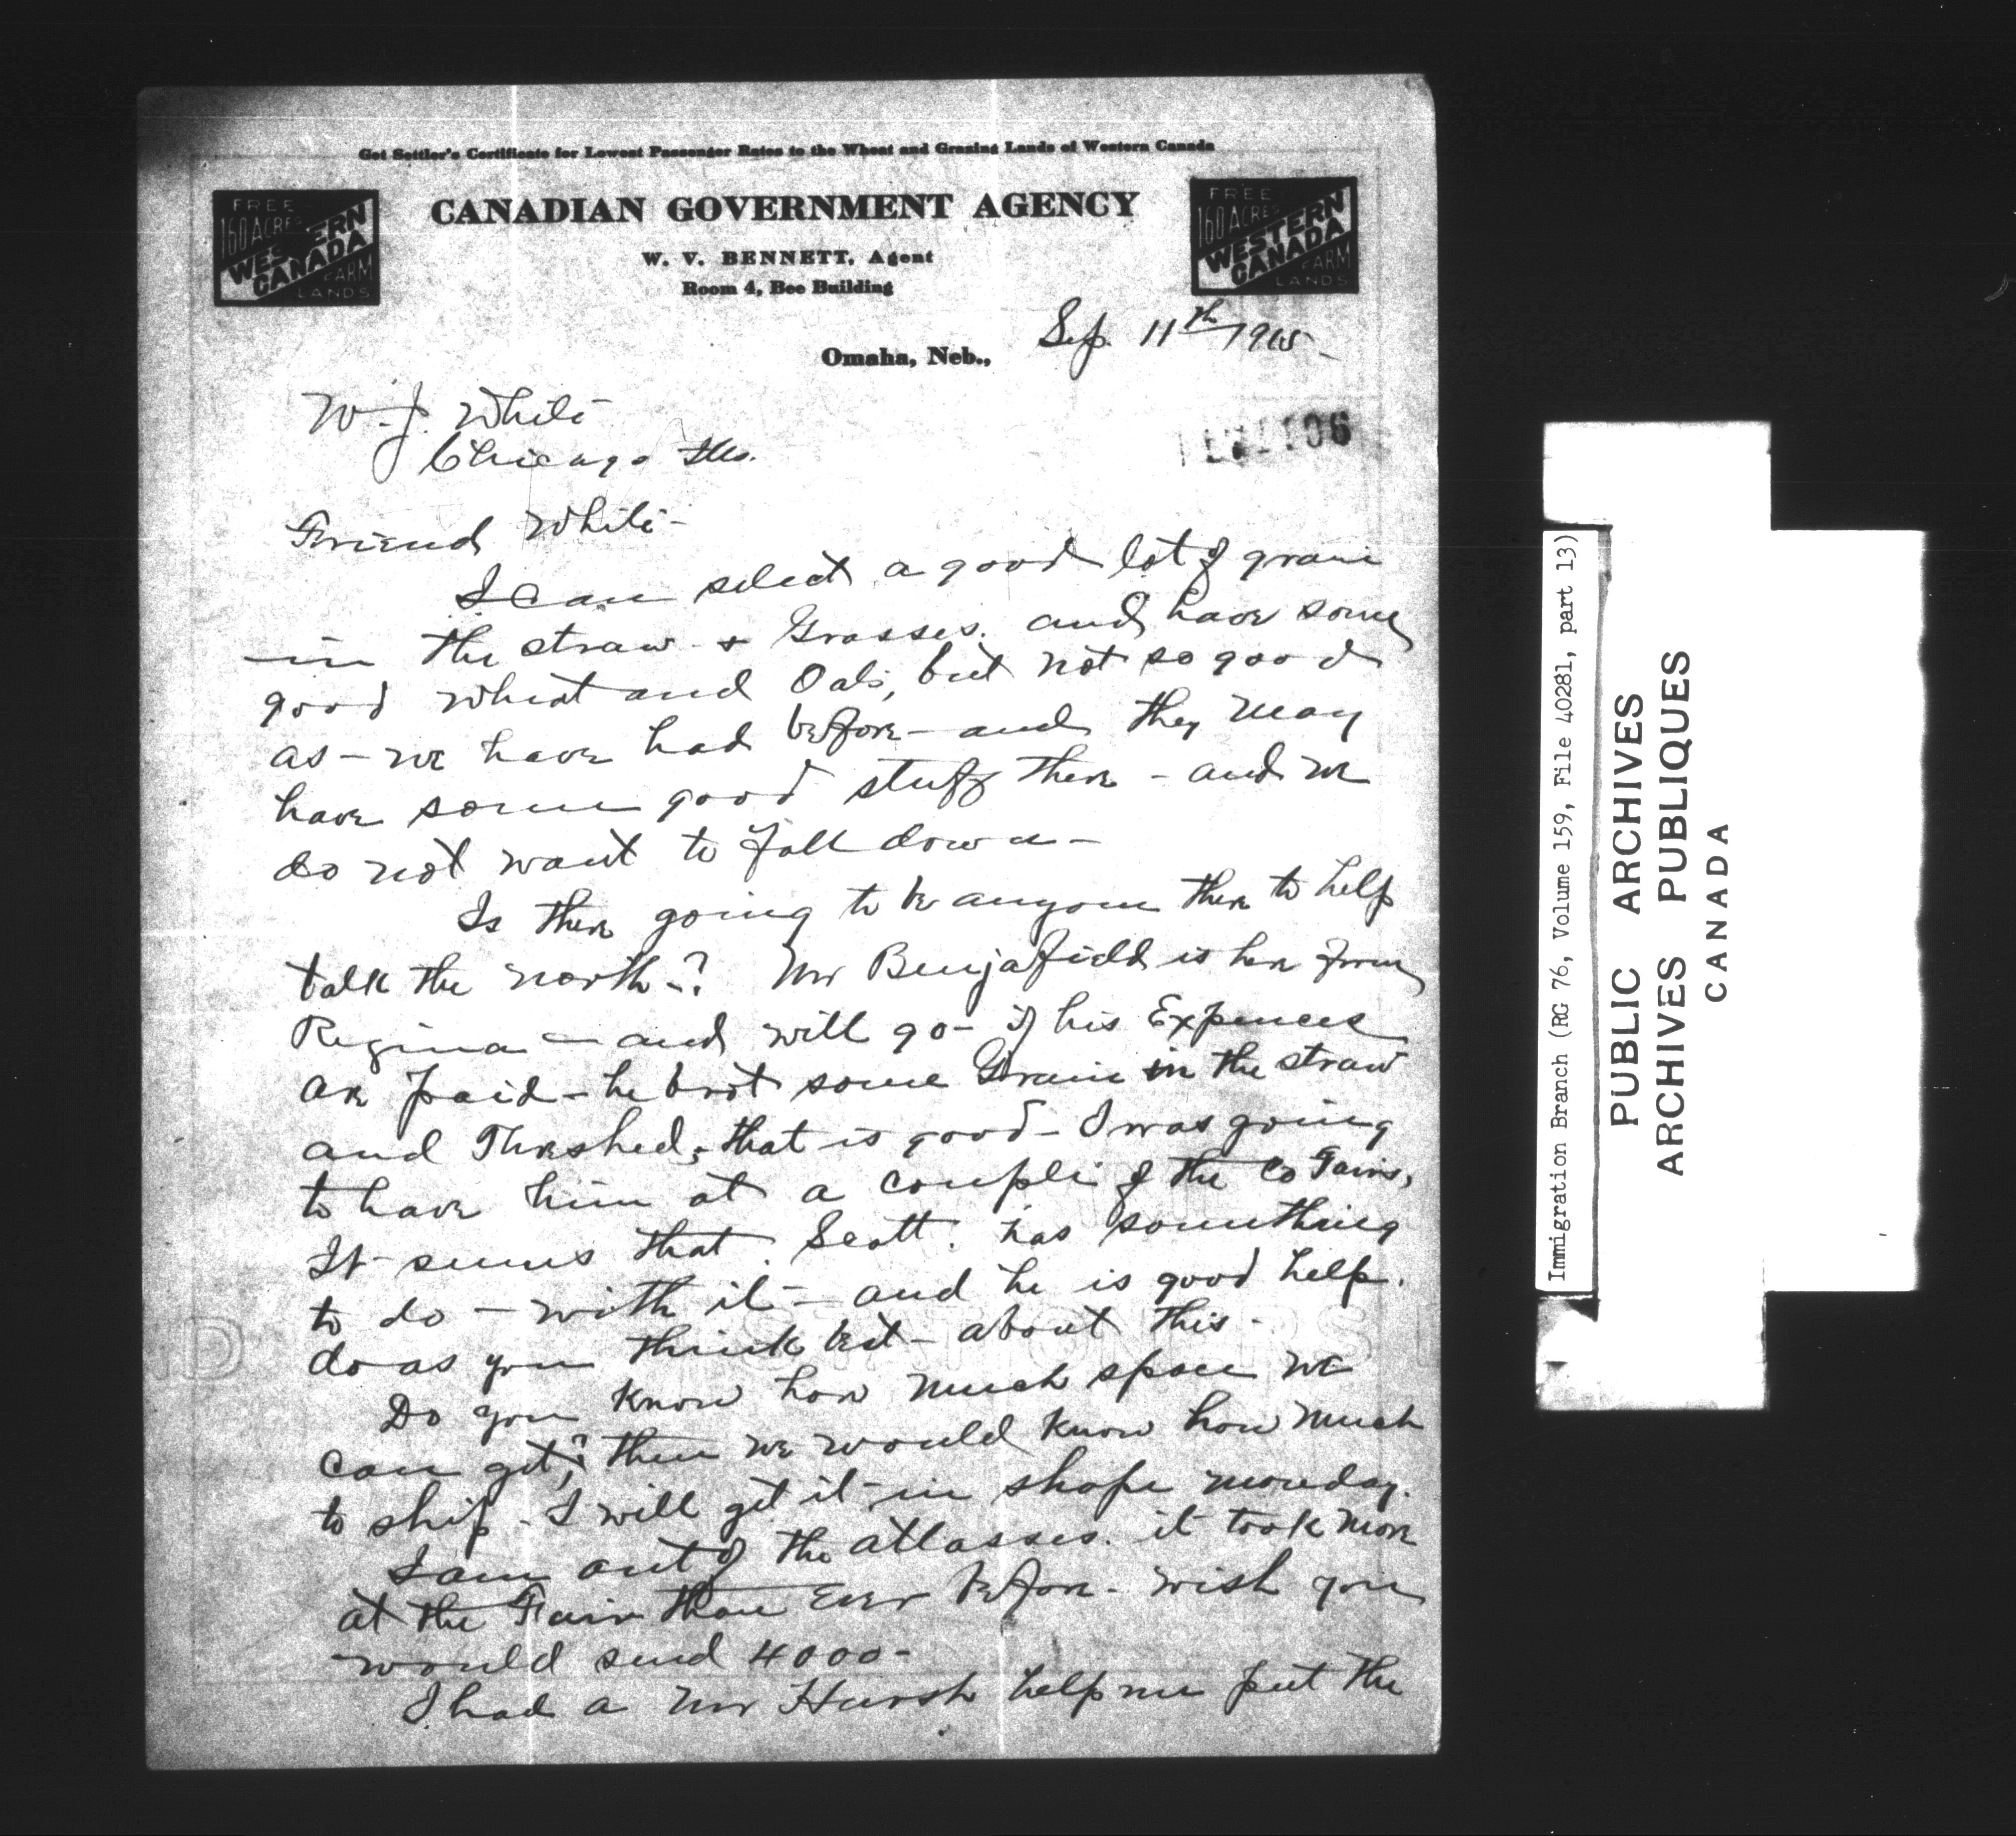 Get Settler's Certificate for Lowest Passenger Rates to the Wheat and Grazing Lands of Western Canada
FREE
160 ACRES
WESTERN
CANADA
FARM
LANDS
CANADIAN GOVERNMENT AGENCY
W. V. BENNETT, Agent
Room 4, Bee Building
FREE
160 ACRES
WESTERN
CANADA
FARM
LANDS
Omaha, Neb., Sep. 11th 1915
W. J. White
Chicago Ills.
Friend White-
I can select a good lot of grain
in the straw & Grasses. and have some
good wheat and Oats, but not so good
as - we have had before - and they may
have some good stuff there - and we
do not want to fall down -
Is there going to be anyone there to help
talk the north -? Mr Benjafield is here from
Regina - and will go - if his Expences
are paid - he brot some Grain in the straw
and Threshed, that is good - I was going
to have him at a couple of the Co Fairs,
It seems that Scott. has something
to do - with it - and he is good help.
do as you think best - about this -
Do you know how much space we
can get? then we would know how much
to ship - I will get it in shape monday.
I am out of the atlasses. it took more
at the Fair than Ever before - wish you
would send 4000 -
I had a Mr Hursh help me put the
Immigration Branch (RG 76, Volume 159, File 40281, part 13)
PUBLIC ARCHIVES
ARCHIVES PUBLIQUES
CANADA